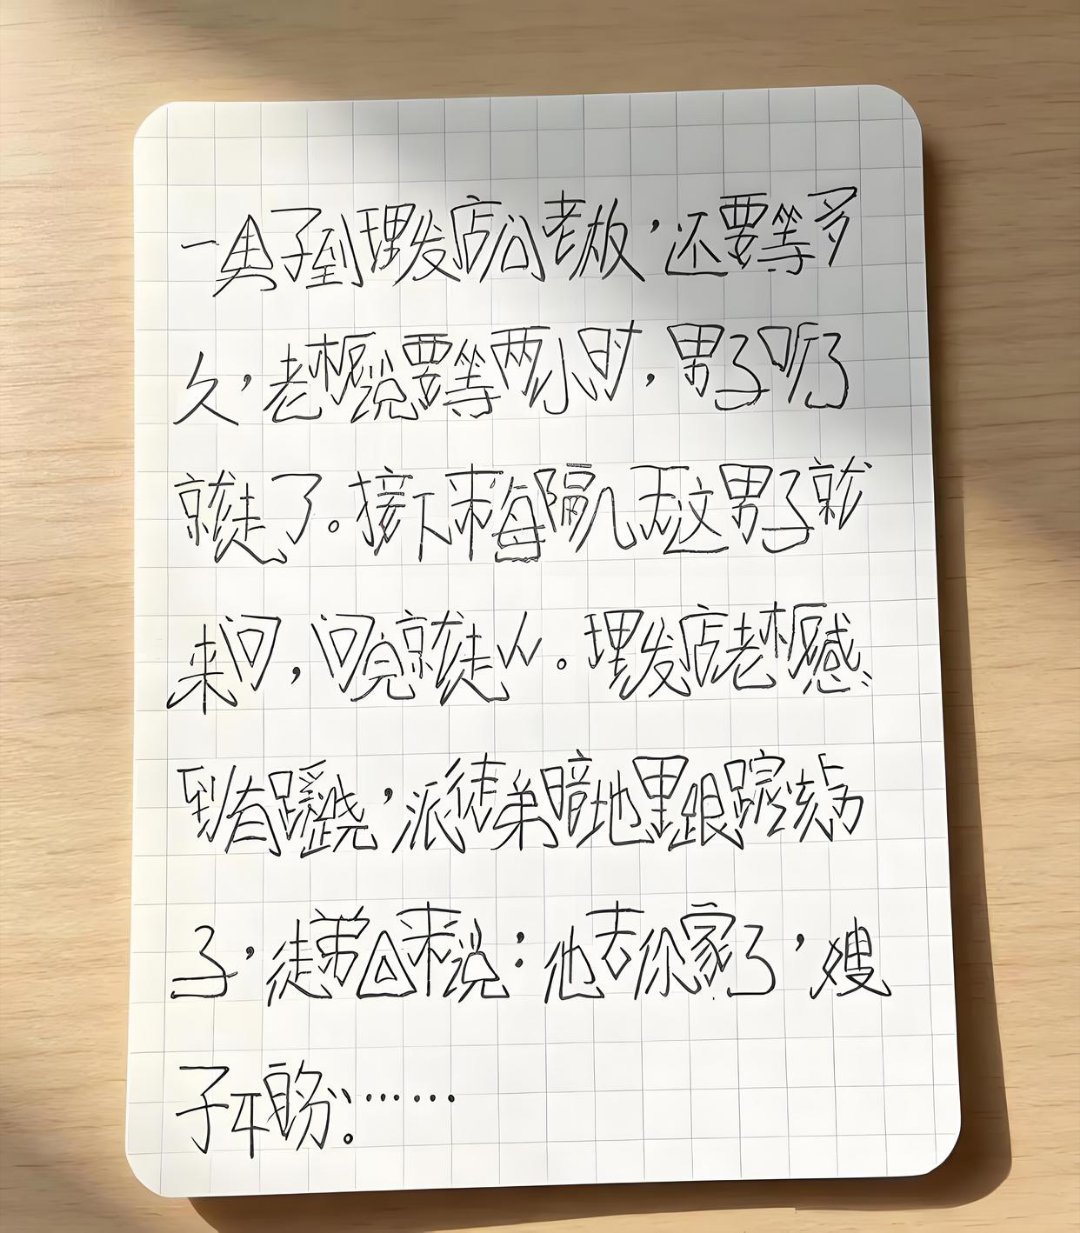 一男子到理发店问老板，还要等多
久，老板说要等两小时，男子听了
就走了。接下来每隔几天这男子就
来问，问完就走人。理发店老板感
到有蹊跷，派徒弟暗地里跟踪该男
子，徒弟回来说：他去你家了，嫂
子不盼：……